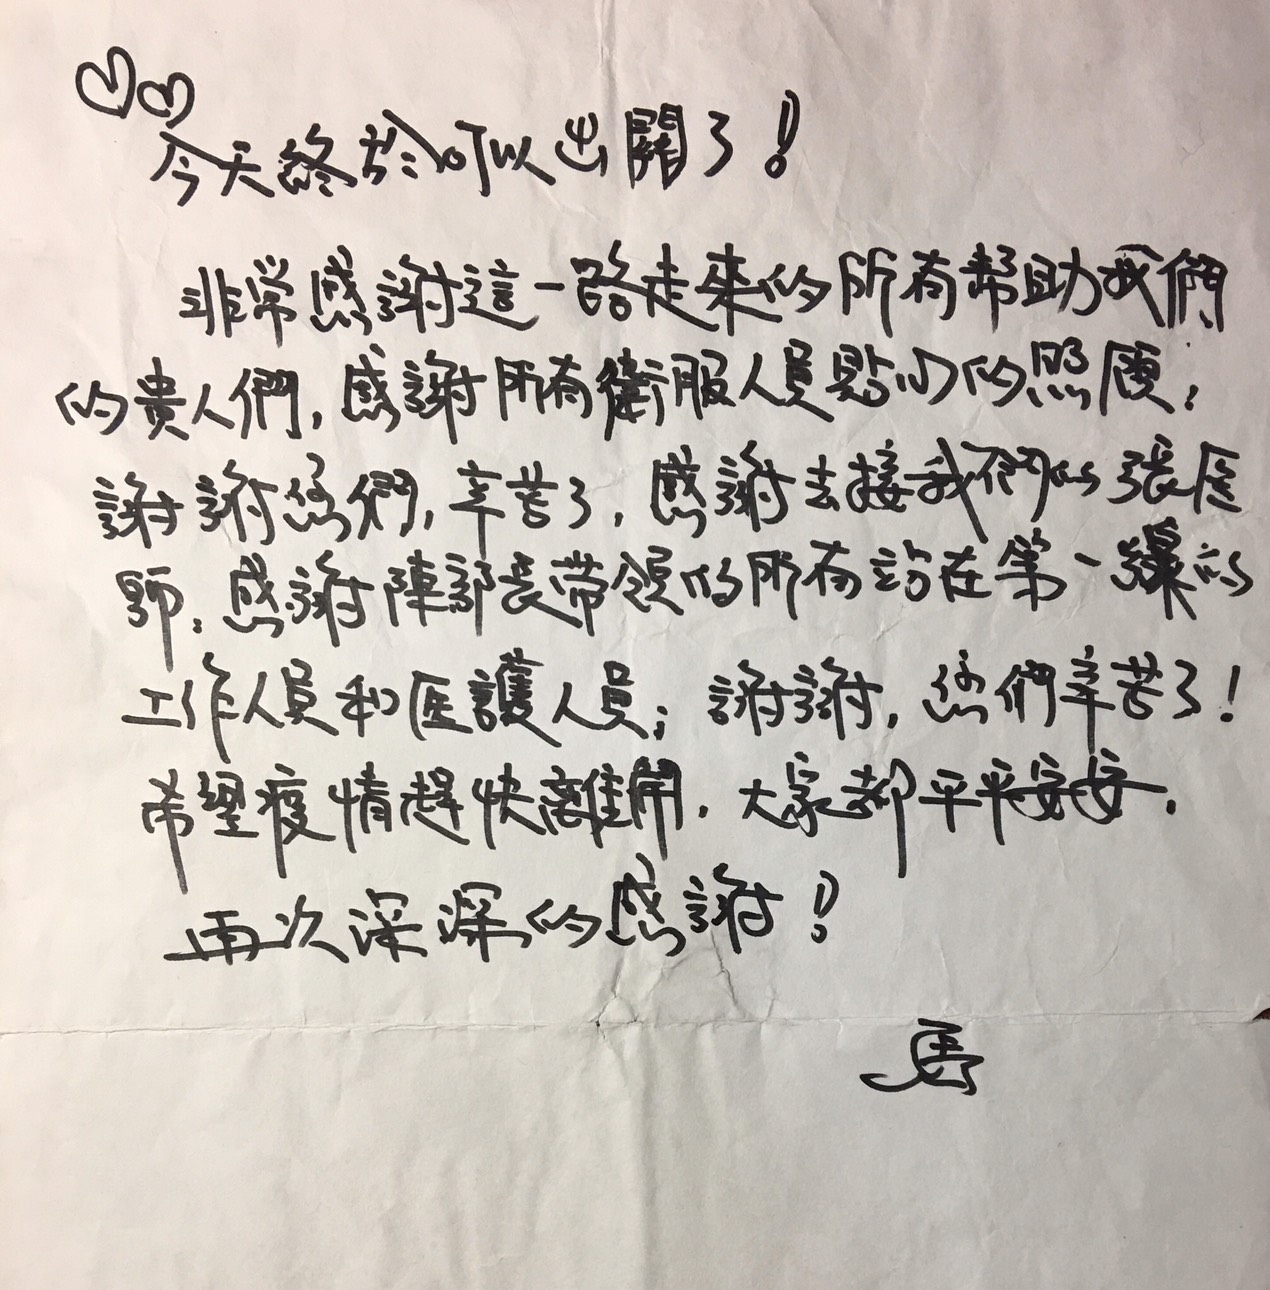 今天終於可以出關了！
非常感謝這一路走來的所有幫助我們
的貴人們，感謝所有衛服人員貼心的照顧；
謝謝您們，辛苦了，感謝去接我們的張医
師；感謝陳部長帶領的所有站在第一線的
工作人員和医護人員；謝謝，您們辛苦了！
希望疫情趕快離開，大家都平平安安，
再次深深的感謝！
馬